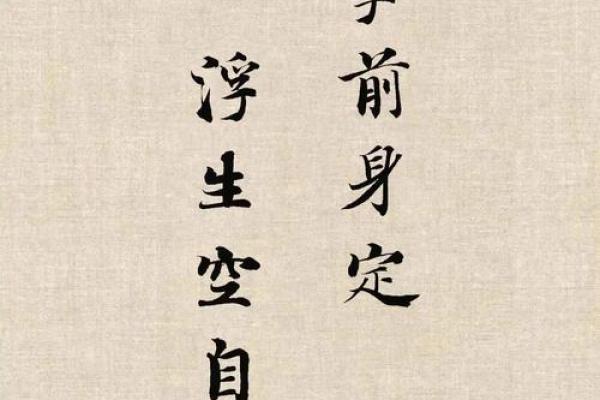 前身定
浮生空自